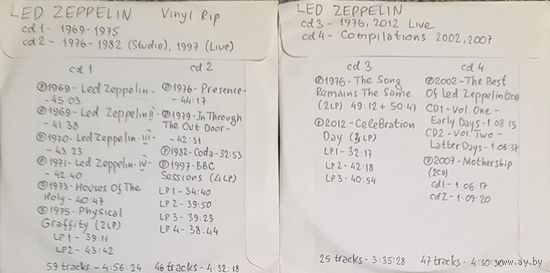 LED ZEPPELIN Vinyl Rip
cd 1 - 1969-1975
cd 2 - 1976-1982 (Studio), 1997 (Live)
cd 1
Ⓟ1969- Led Zeppelin-
- 45:03
Ⓟ1969- Led Zeppelin-II-
- 41:38
Ⓟ1970- Led Zeppelin-III-
- 43:23
Ⓟ1971- Led Zeppelin-IV-
- 42:40
Ⓟ1973- Houses Of The
Holy - 40:47
Ⓟ1975- Physical
Graffity (2LP)
LP1 - 39:11
LP2 - 43:42
59 tracks - 4:56:24
cd 2
Ⓟ1976- Presence-
- 44:17
Ⓟ1979- In Through
The Out Door-
- 42:31
Ⓟ1982- Coda- 32:53
Ⓟ1997- BBC
Sessions (4LP)
LP1 - 34:40
LP2 - 39:50
LP3 - 39:23
LP4 - 38:44
46 tracks - 4:32:18
LED ZEPPELIN
cd 3 - 1976, 2012 Live
cd 4 - Compilations 2002, 2007
cd 3
Ⓟ1976 - The Song
Remains The Same
(2LP) 49:12 + 50:47
Ⓟ2012 - Celebration
Day (3LP)
LP1 - 32:17
LP2 - 42:18
LP3 - 40:54
25 tracks - 3:35:28
cd 4
Ⓟ2002 - The Best
Of Led Zeppelin (2CD)
CD1 - Vol One -
Early Days - 1:08:15
CD2 - Vol Two -
Latter Days - 1:06:37
Ⓟ2007 - Mothership
(2CD)
cd1 - 1:06:17
cd2 - 1:09:20
47 tracks - 4:30:30
www.ay.by